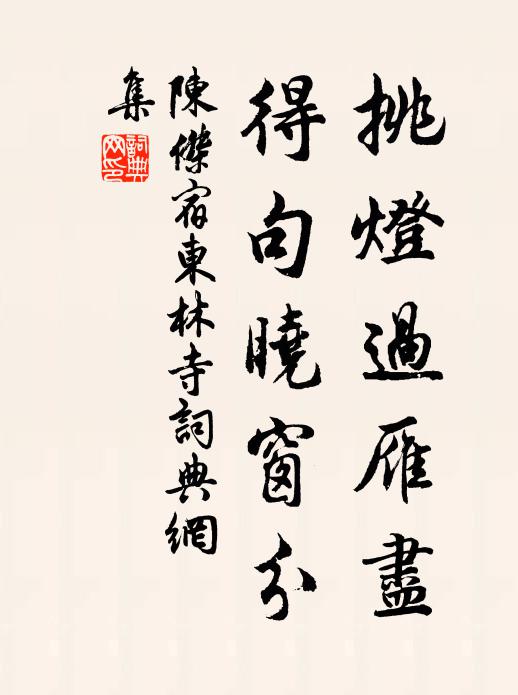 挑燈過雁盡
得句曉窗分
陳傑宿東林寺詞典網
集
詞典
網印